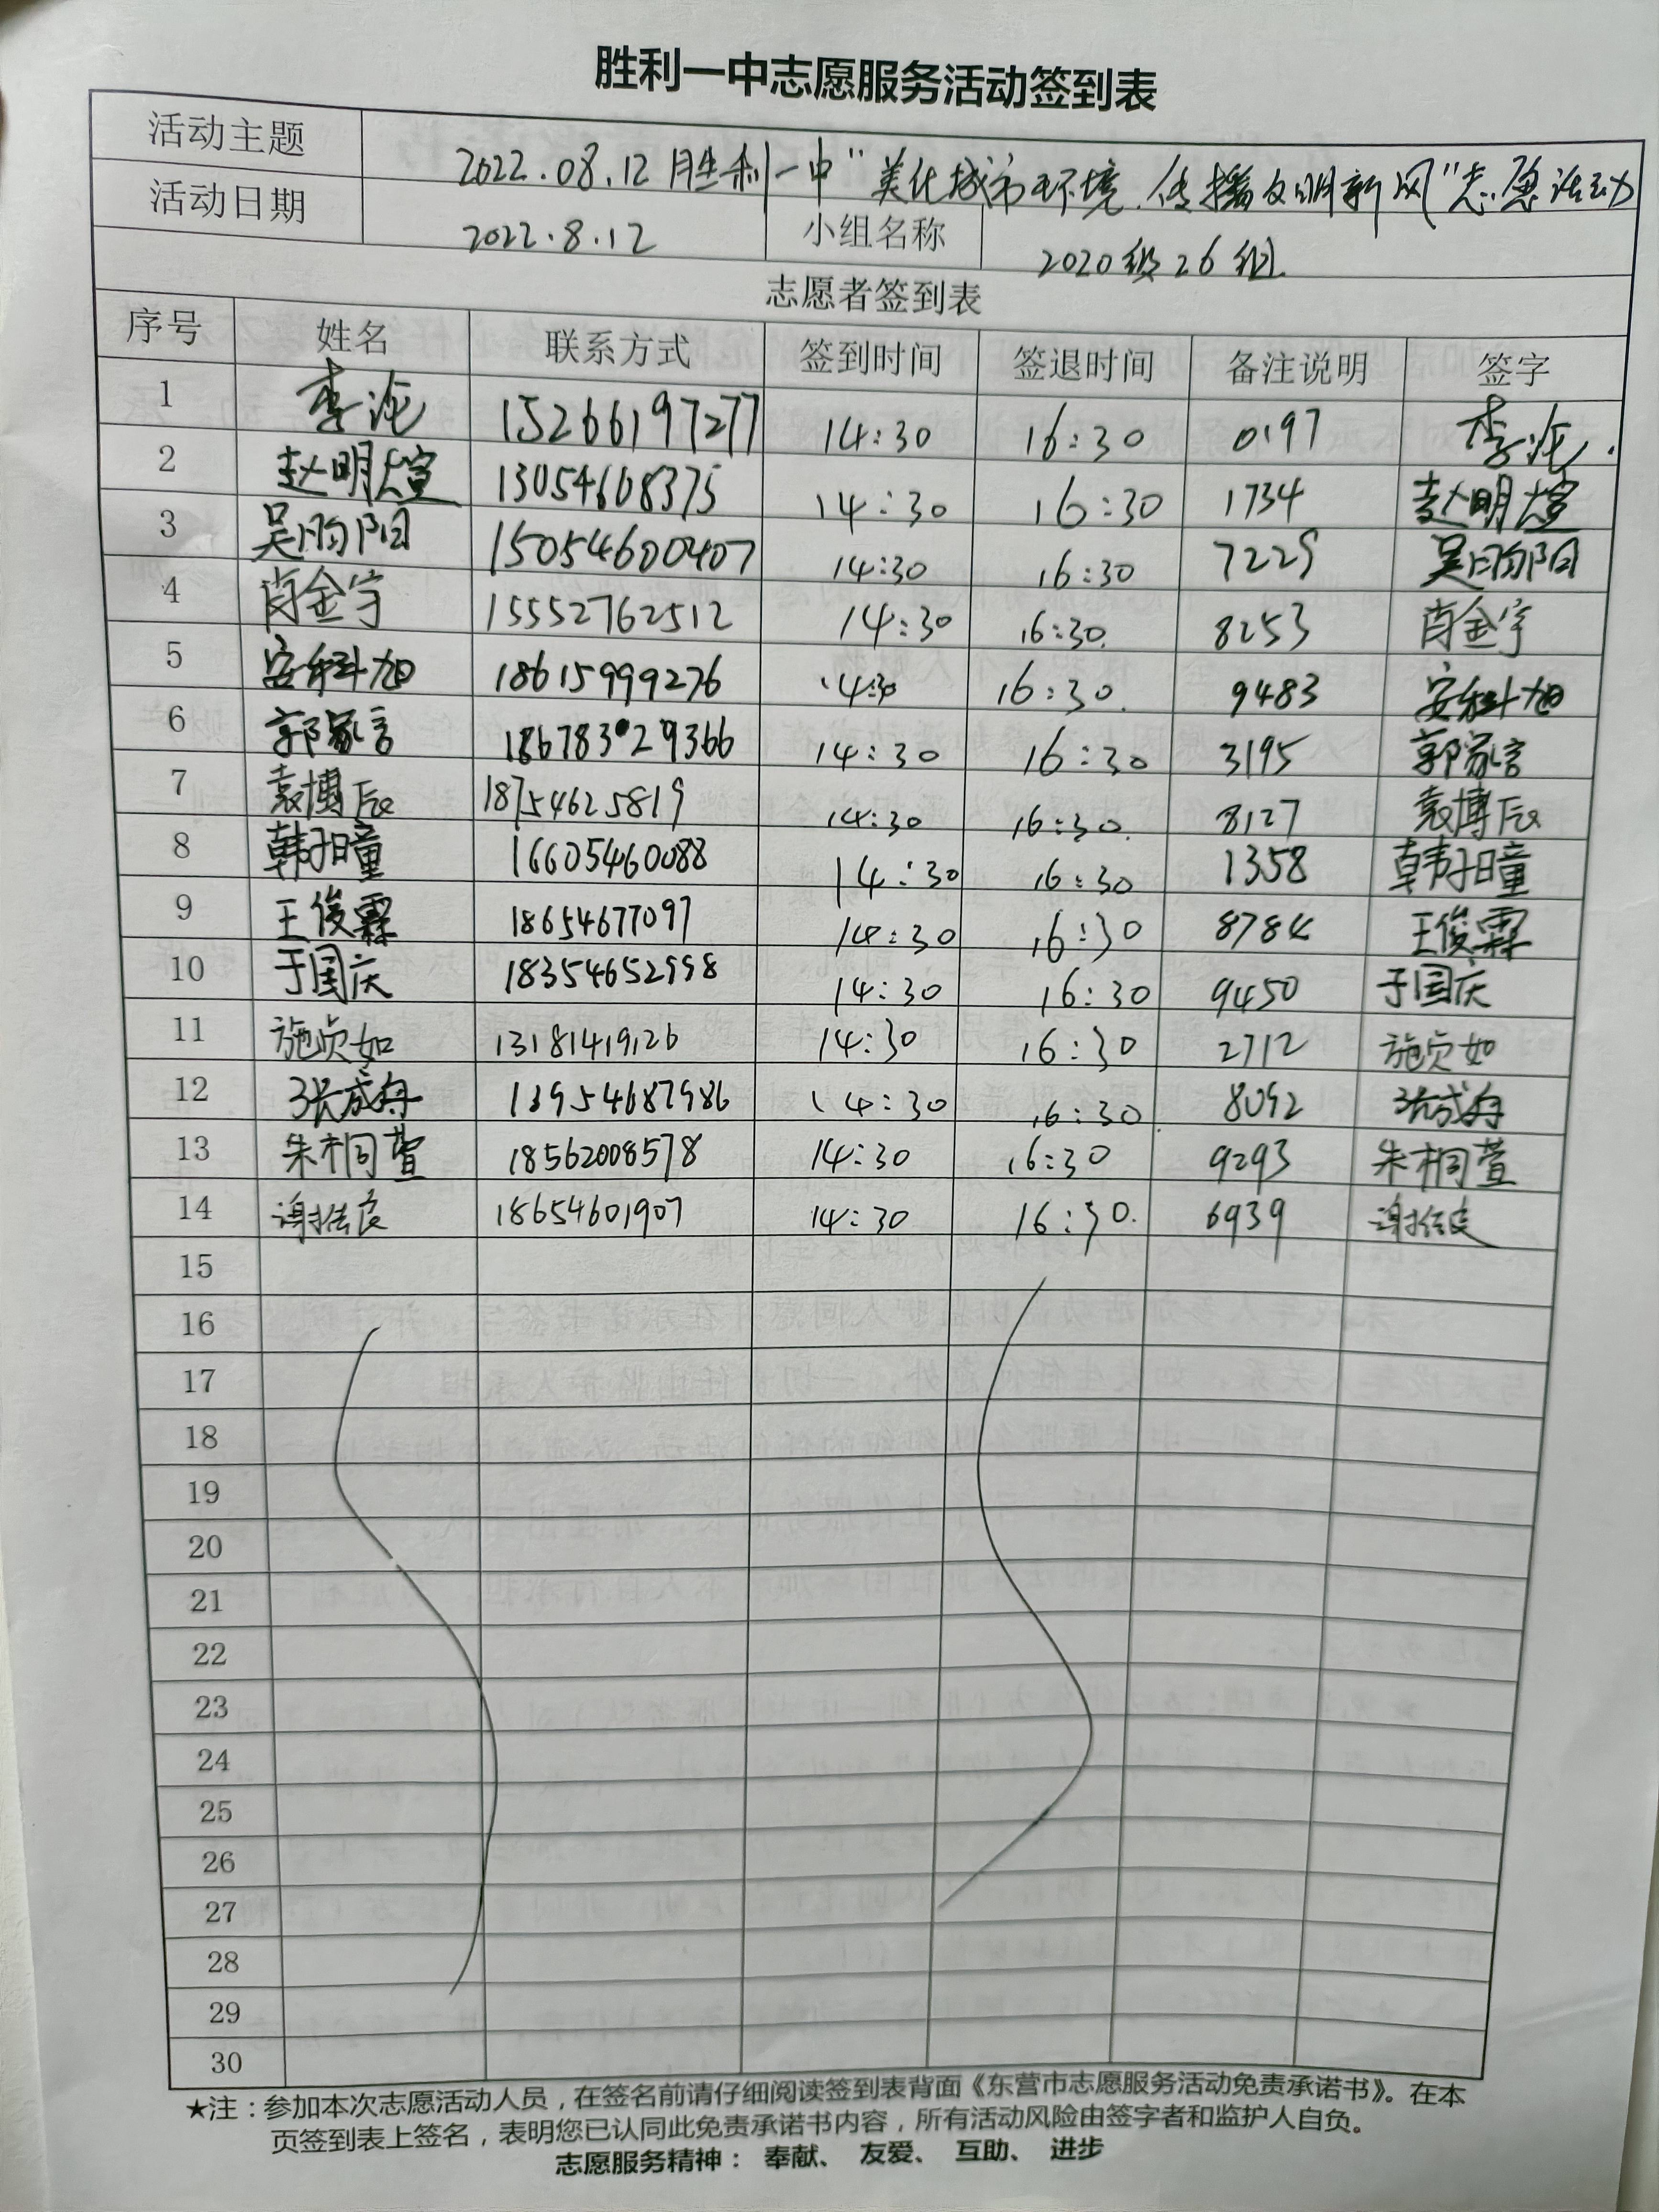 胜利一中志愿服务活动签到表
活动主题 2022.08.12 胜利一中“美化城市环境.传播文明新风”志愿活动
活动日期 2022.8.12 小组名称 2020级26组
志愿者签到表
序号 姓名 联系方式 签到时间 签退时间 备注说明 签字
1 李沱 15266197277 14:30 16:30 0197 李沱
2 赵明煊 13054608375 14:30 16:30 1734 赵明煊
3 吴昀阳 15054600407 14:30 16:30 7229 吴昀阳
4 肖金宇 15552762512 14:30 16:30 8253 肖金宇
5 安科旭 18615999276 14:30 16:30 9483 安科旭
6 郭家言 18678329366 14:30 16:30 3195 郭家言
7 袁博辰 18754625819 14:30 16:30 8127 袁博辰
8 韩子曈 16605460088 14:30 16:30 1358 韩子曈
9 王俊霖 18654677097 14:30 16:30 8784 王俊霖
10 于国庆 18354652998 14:30 16:30 9450 于国庆
11 施贞如 13181419126 14:30 16:30 2712 施贞如
12 张成舟 13954687986 14:30 16:30 8092 张成舟
13 朱桐萱 18562008578 14:30 16:30 9293 朱桐萱
14 18654601907 14:30 16:30 6939
15
16
17
18
19
20
21
22
23
24
25
26
27
28
29
30
★注：参加本次志愿活动人员，在签名前请仔细阅读签到表背面《东营市志愿服务活动免责承诺书》。在本
页签到表上签名，表明您已认同此免责承诺书内容，所有活动风险由签字者和监护人自负。
志愿服务精神： 奉献、 友爱、 互助、 进步